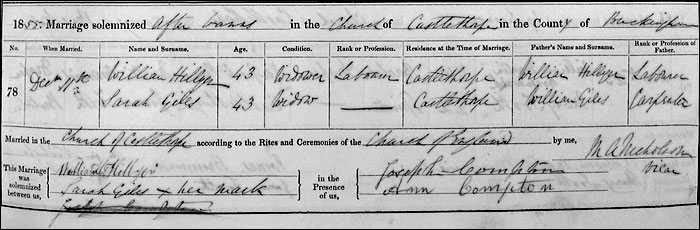 1855. Marriage solemnized after banns in the Church of Castlethorpe in the County of Buckingham
No. When Married. Name and Surname. Age. Condition. Rank or Profession. Residence at the Time of Marriage. Father's Name and Surname. Rank or Profession of Father.
78 Decr William Hillyer 43 Widower Labourer Castlethorpe William Hillyer Labourer
Sarah Giles 43 Widow Castlethorpe William Giles Carpenter
Married in the Church of Castlethorpe according to the Rites and Ceremonies of the Church of England by me, M A Nicholson
Vicar
This Marriage was solemnized between us, William Hillyer
Sarah Giles x her mark
Joseph Compton
in the Presence of us, Joseph Compton
Ann Compton